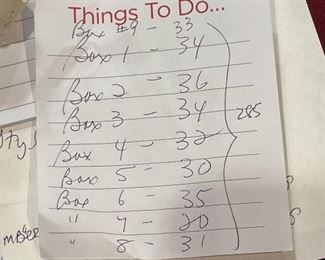 Things To Do...
Box #9 - 33
Box 1 - 34
Box 2 - 36
Box 3 - 34
Box 4 - 32
Box 5 - 30
Box 6 - 35
" 7 - 20
" 8 - 31
285